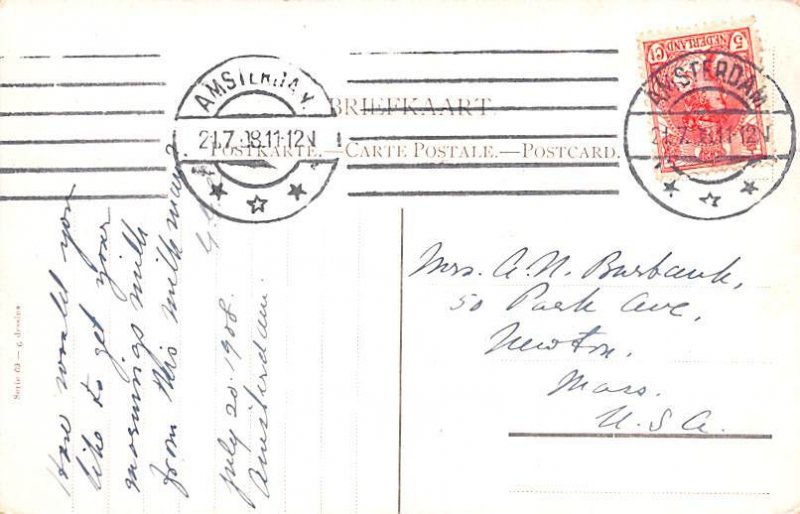 BRIEFKAART.
POSTKARTE.—CARTE POSTALE.—POSTCARD.
AMSTERDAM
21.7.08.11-12V
AMSTERDAM
21.7.08.11-12V
5 Ct
NEDERLAND
How would you
like to get your
mornings milk
from this milk man?
July 20. 1908.
Amsterdam.
Mrs. A. N. Burbank,
50 Park Ave,
Newton,
Mass.
U.S.A.